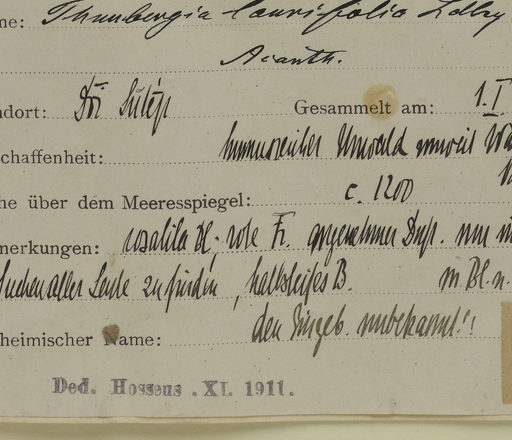 me: Thunbergia laurifolia Ldley
Acanth.
ndort: Doi Sutép Gesammelt am: 1.I
chaffenheit: humusreicher Urwald unweit Wa
he über dem Meeresspiegel: c. 1200
merkungen: rosalila Bl; rote Fr. angenehmer Duft. nur
Suchen aller Leute zu finden, halbsteifes B. m. Bl. u.
heimischer Name: den Eingeb. unbekannt!!
Ded. Hosseus .XI. 1911.